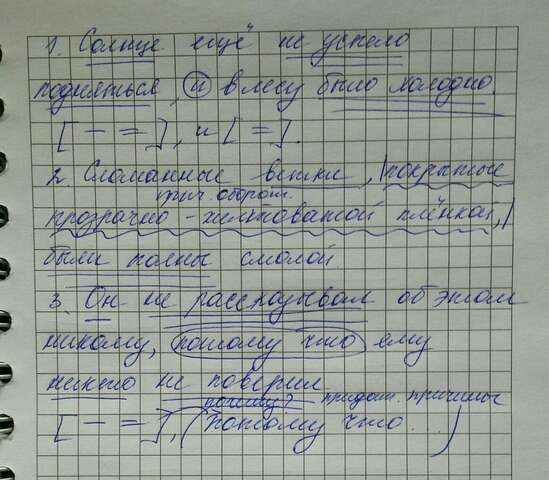 1. Солнце ещё не успело
подняться, и в лесу было холодно.
[ — = ], и [ = ].
2. Сломанные ветки, |покрытые
прич. оборот.
прозрачно-желтоватой плёнкой,|
были полны смолой
3. Он не рассказывал об этом
никому, потому что ему
никто не поверил
почему? придат. причины
[ — = ], (потому что...)